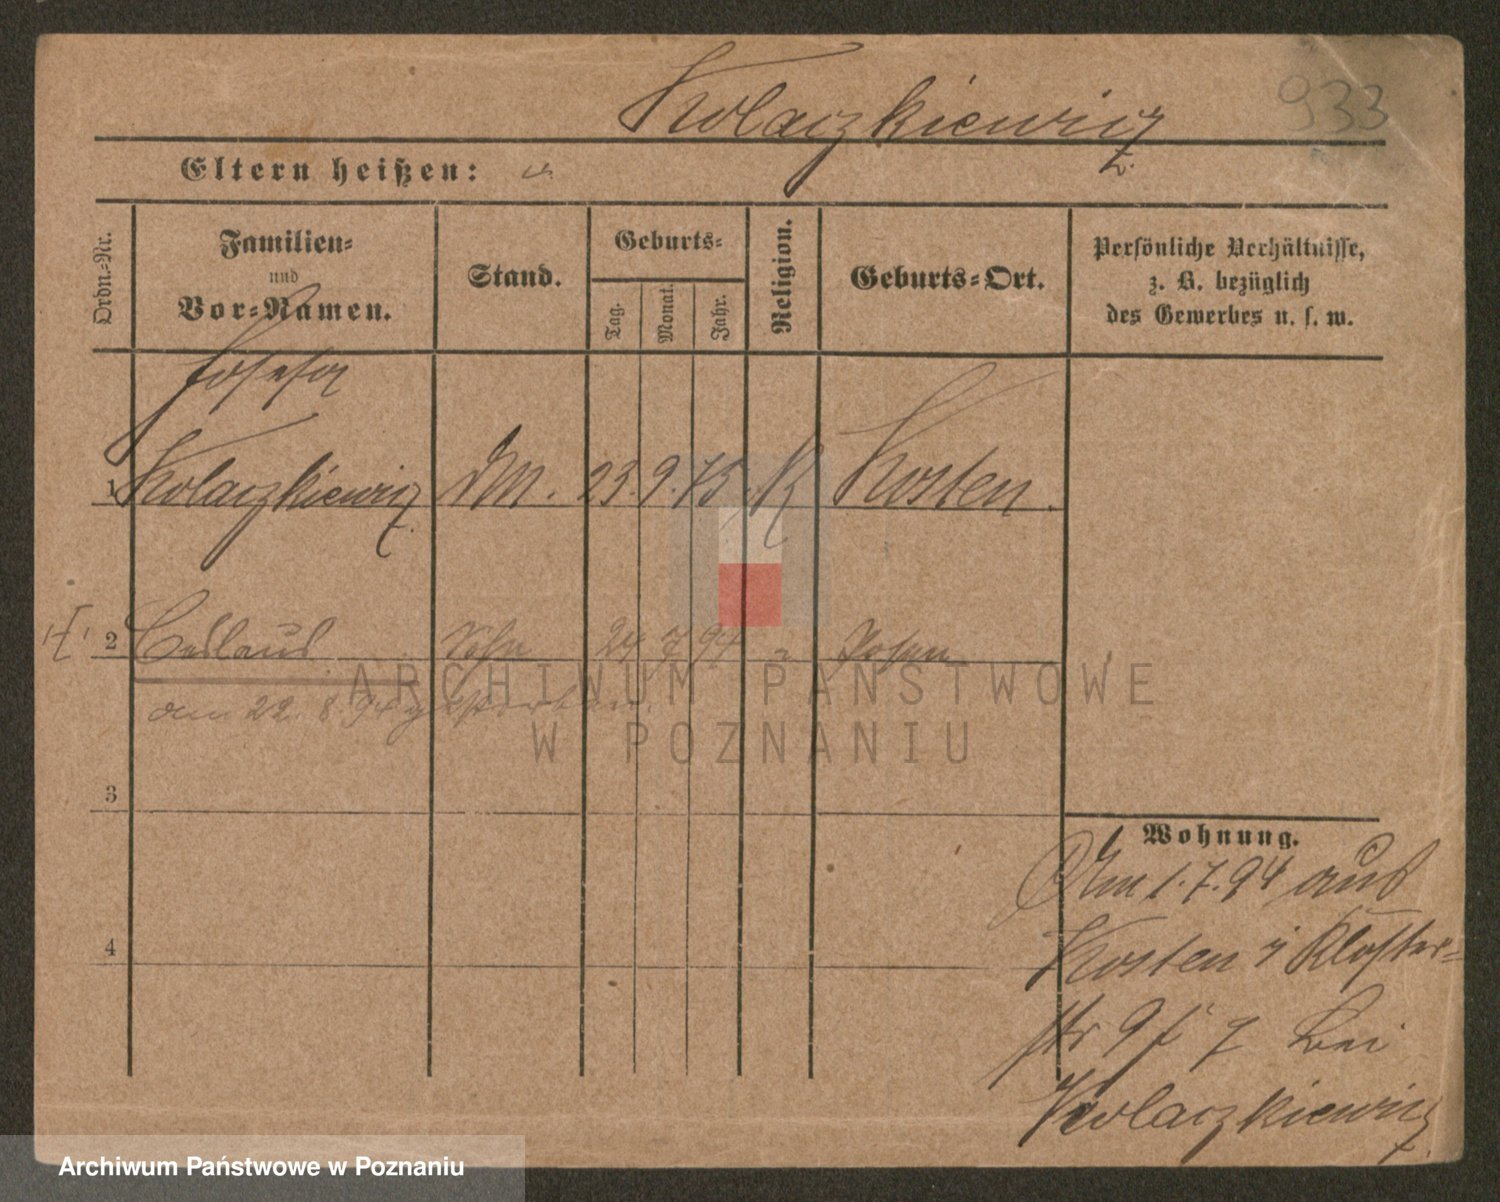 933
Kolaczkiewicz
Eltern heißen:
Ordn.=Nr.
Familien=
und
Vor=Namen.
Stand.
Geburts=
Tag.
Monat.
Jahr.
Religion.
Geburts=Ort.
Persönliche Verhältnisse,
z. B. bezüglich
des Gewerbes u. s. w.
Josefa
1 Kolaczkiewicz DM. 23. 9. 75. K Kosten.
2 Ceslaus Sohn 24 7 94 " Posen
am 22. 8. 94 gestorben.
3
4
Wohnung.
Am 1.7.94 aus
Kosten Kloster=
str 9 bei
Kolaczkiewicz
ARCHIWUM PAŃSTWOWE
W POZNANIU
Archiwum Państwowe w Poznaniu